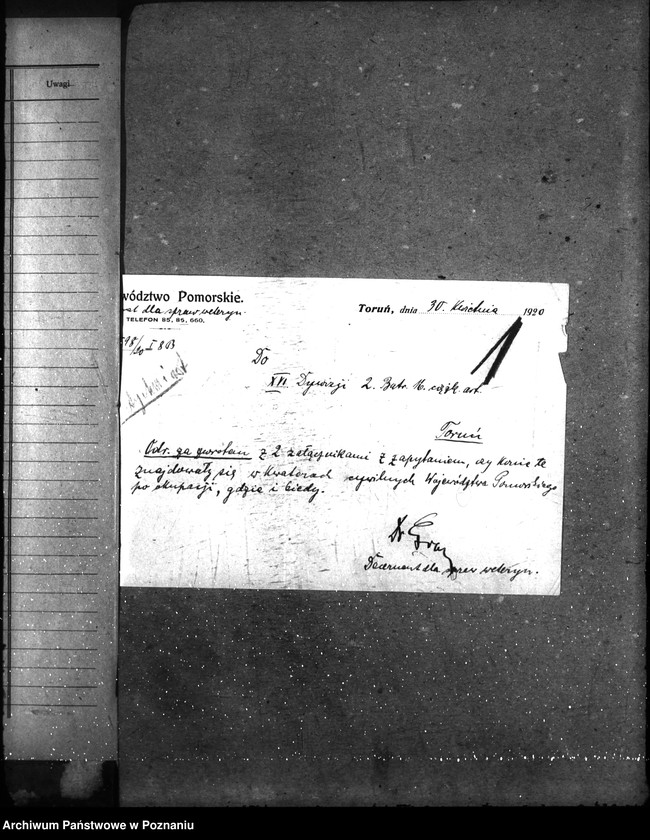 Uwagi
wództwo Pomorskie.
dla spraw weteryn.
TELEFON 85, 86, 660.
Toruń, dnia 30. Kwietnia 1920
I 803
Do
XVI Dywizji 2. Batr. 16. ciężk. art.
Toruń
Odr. za zwrotem z 2 załącznikami z zapytaniem, czy konie te
znajdowały się w kwaterach cywilnych Województwa Pomorskiego
po okupacji, gdzie i kiedy.
Dr
Decernent dla spraw weteryn.
Archiwum Państwowe w Poznaniu